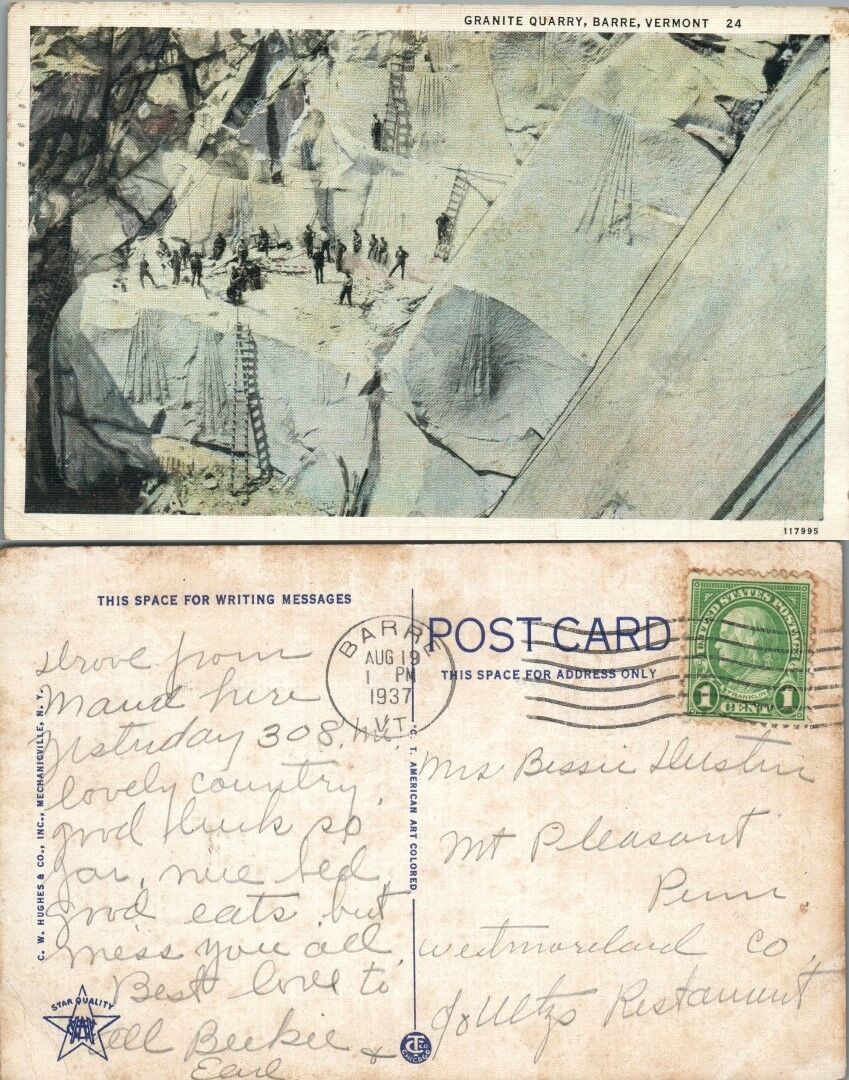 GRANITE QUARRY, BARRE, VERMONT 24
117995
THIS SPACE FOR WRITING MESSAGES
BARRE
AUG 19
1 PM
1937
VT.
POST CARD
THIS SPACE FOR ADDRESS ONLY
UNITED STATES POSTAGE
FRANKLIN
1 CENT 1
drove from
here
yesturday 308 mi
lovely country,
good luck so
far, nice bed
good eats but
miss you all
Best love to
all Beckie &
Earl
Mrs Bessie Hustin
Mt Pleasant
Penn.
Westmoreland Co
c/o Ultzs Restaurant
C. W. HUGHES & CO., INC., MECHANICVILLE, N. Y.
"C. T. AMERICAN ART COLORED"
STAR QUALITY
CT CO
CHICAGO